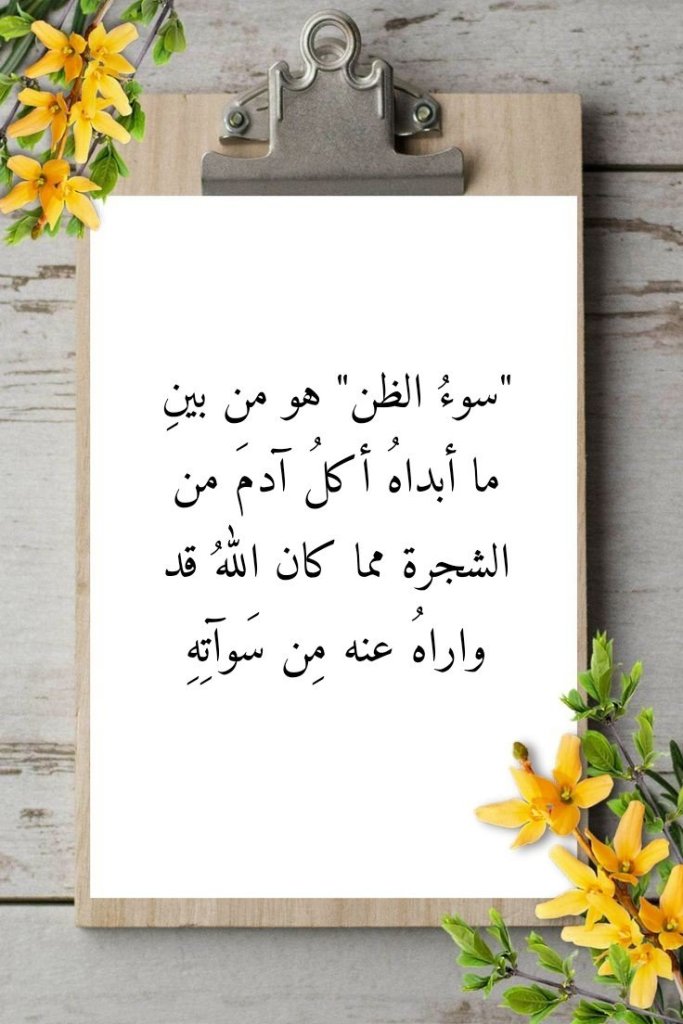 "سوءُ الظن" هو من بينِ
ما أبداهُ أكلُ آدمَ من
الشجرة مما كان اللهُ قد
واراهُ عنه مِن سَوآتِهِ